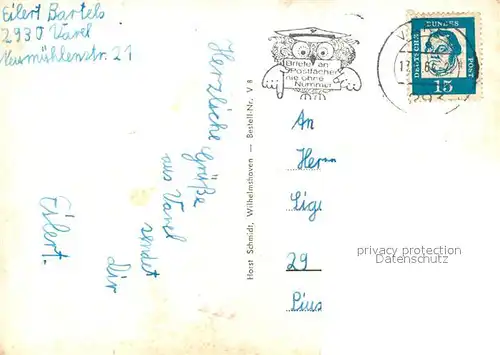 Eilert Bartels
2930 Varel
Neumühlenstr. 21
Herzliche Grüße
aus Varel
sendet
Dir
Eilert.
Horst Schmidt, Wilhelmshaven — Bestell-Nr. V 8
Briefe an
Postfächer
nie ohne
Nummer
DEUTSCHE BUNDESPOST
15
An
Herrn
29
Pius
privacy protection
Datenschutz